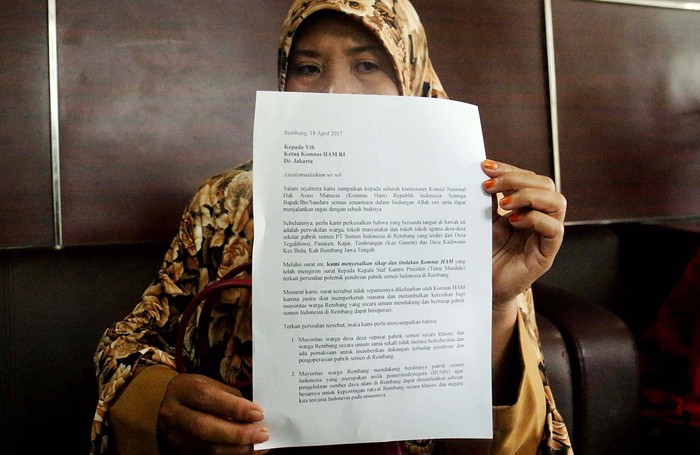 Rembang, 18 April 2017
Kepada Yth
Ketua Komnas HAM RI
Di- Jakarta
Assalamualaikum wr wb
Salam sejahtera kami sampaikan kepada seluruh komisioner Komisi Nasional
Hak Asasi Manusia (Komnas Ham) Republik Indonesia. Semoga
Bapak/Ibu/Saudara semua senantiasa dalam lindungan Allah swt serta dapat
menjalankan tugas dengan sebaik baiknya.
Sebelumnya, perlu kami perkenalkan bahwa yang bertanda tangan di bawah ini
adalah perwakilan warga, tokoh masyarakat dan tokoh tokoh agama desa-desa
sekitar pabrik semen PT Semen Indonesia di Rembang yang terdiri dari Desa
Tegaldowo, Pasucen, Kajar, Timbrangan (Kec Gunem) dan Desa Kadiwono
Kec Bulu, Kab Rembang Jawa Tengah.
Melalui surat ini, kami menyesalkan sikap dan tindakan Komnas HAM yang
telah mengirim surat kepada Kepala Staf Kantro Presiden (Teten Masduki)
terkait persoalan polemik pendirian pabrik semen Indonesia di Rembang.
Menurut kami, surat tersebut tidak sepantasnya dikeluarkan oleh Komnas HAM
karena justru ikut memperkeruh suasana dan menimbulkan keresahan bagi
mayoritas warga Rembang yang secara umum mendukung dan berharap pabrik
semen Indonesia di Rembang dapat beroperasi.
Terkait persoalan tersebut, maka kami perlu menyampaikan bahwa:
1. Mayoritas warga desa desa seputar pabrik semen secara khusus, dan
warga Rembang secara umum sama sekali tidak merasa berkeberatan dan
ada pemaksaan untuk memberikan dukungan terhadap pendirian dan
pengoperasian pabrik semen di Rembang.
2. Mayoritas warga Rembang mendukung berdirinya pabrik semen
Indonesia yang merupakan milik pemerintah/negara (BUMN) agar
pengelolaan sumber daya alam di Rembang dapat dimanfaatkan sebesar
besarnya untuk kepentingan rakyat Rembang secara khusus dan negara
kita tercinta Indonesia pada umumnya.